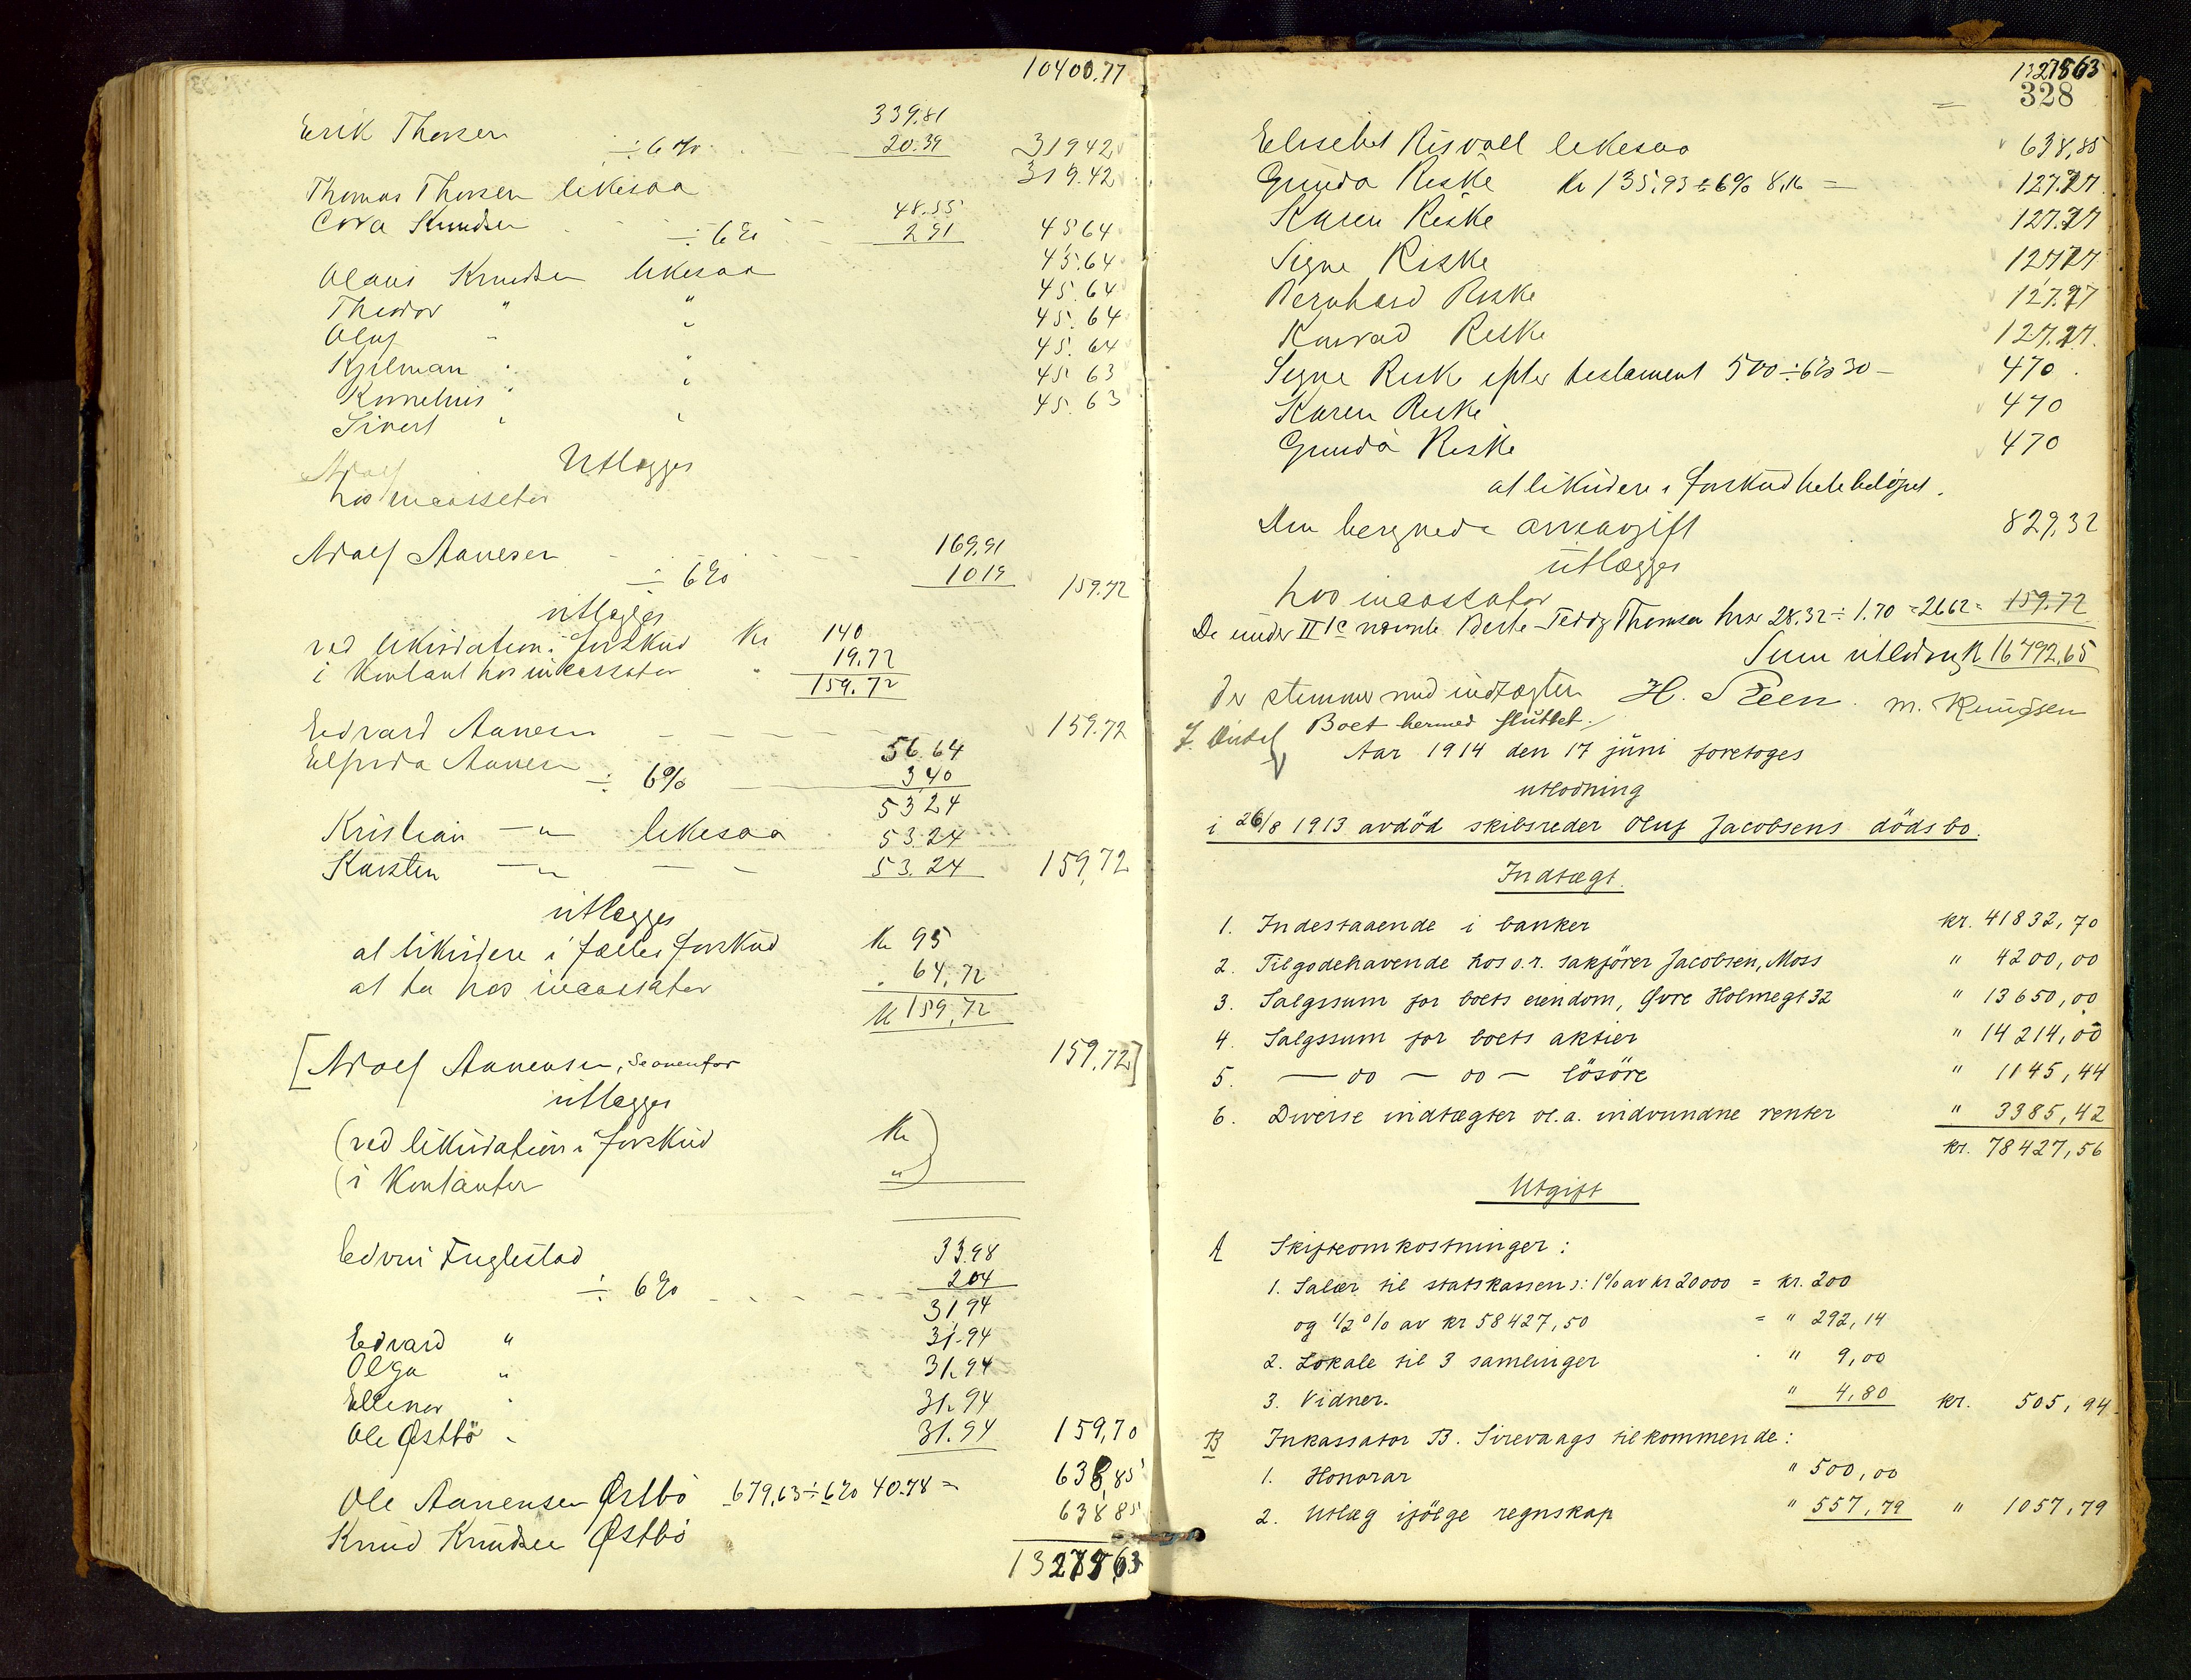 10400.77
Erik Thorsen 339,81
÷ 6 % 20.39 319 42
Thomas Thorsen likesaa 319.42
Cora Knudsen 48.55
÷ 6 % 2 91 45 64
Olaus Knudsen likesaa 45.64
Theodor " " 45.64
Oluf " " 45.64
Hjelman " 45.64
Kornelius " " 45 63
Sivert " " 45.63
Utlægges
Adolf
hos incassator
Adolf Aanesen 169,91
÷ 6 % 10 19 159.72
utlægges
ved likvidation i forskud Kr 140
i Kontant hos incassator " 19.72
159.72
Edvard Aanesen 159.72
Elfrida Aanesen 56.64
÷ 6 % 3 40
53 24
Kristian — " — likesaa 53.24
Karsten — " — — 53.24 159,72
utlægges
at likvidere i fælles forskud Kr 95
at ta hos incassator " 64,72
Kr 159,72
[Adolf Aanensen, se ovenfor 159,72]
utlægges
(ved likvidation i forskud Kr )
(i Kontanter " )
Edvin Fuglestad 33.98
÷ 6 % 2 04
31 94
Edvard " 31.94
Olga " 31.94
Ellenor " 31.94
Ole Østbö " 31.94 159,70
Ole Aanensen Østbö 679,63 ÷ 6 % 40.78 = 638,85
Knud Knudsen Østbö 638 85
13278,63
13278,63
328
Elisebet Risvoll likesaa 638,85
Gunda Riske Kr 135,93 ÷ 6 % 8,16 = 127.77
Karen Riske 127.77
Signe Riske 127.77
Bernhard Riske 127.77
Konrad Riske 127.77
Signe Risk efter testament 500 ÷ 6 % 30 – 470
Karen Riske 470
Gunda Riske 470
at likvidere i forskud hele beløpet.
Den beregnede arveavgift 829,32
utlægges
hos incassator
De under II 1c nævnte Berthe – Teddy Thomsen hver 28.32 ÷ 1.70 = 26 62 = 159.72
Sum utlodning Kr 16792,65
der stemmer med indtægten H. Steen. M. Knudsen
Boet hermed sluttet.
Aar 1914 den 17 juni foretoges
utlodning
i 26/8 1913 avdöd skibsreder Oluf Jacobsens dödsbo.
Indtægt
1. Indestaaende i banker kr. 41832,70
2. Tilgodehavende hos o.r. sakförer Jacobsen, Moss " 4200,00
3. Salgssum for boets eiendom, Øvre Holmegt 32 " 13650,00
4. Salgssum for boets aktier " 14214,00
5. — do — do — lösöre " 1145,44
6. Diverse indtægter bl.a. indvundne renter " 3385,42
kr. 78427,56
Utgift
A Skifteomkostninger:
1. Salær til statskassen ɔ: 1% av kr 20000 = kr. 200
og 1/2 % av kr 58427,50 = " 292,14
2. Lokale til 3 samlinger " 9,00
3. Vidner. " 4,80 kr. 505,94
B Inkassator B. Sirevaags tilkommende:
1. Honorar " 500,00
2. Utlæg ifölge regnskap " 557,79 " 1057,79